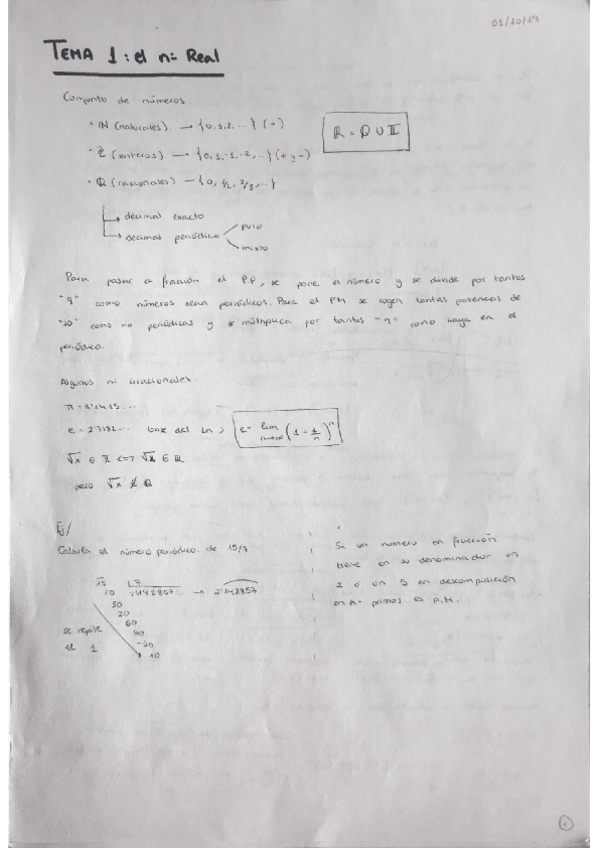 01/10/19
TEMA 1: el nº Real
Conjunto de números:
· ℕ (naturales) → {0,1,2,...} (+)
ℝ = ℚ ∪ 𝕀
· ℤ (enteros) → {0,1,-1,-2,...} (+ y -)
· ℚ (racionales) → {0, 1/2, 2/3,...}
→ decimal exacto
→ decimal periódico
puro
mixto
Para pasar a fracción el P.P, se pone el número y se divide por tantos
"9" como números sean periódicos. Para el PM se cogen tantas potencias de
"10" como no periódicas y se multiplica por tantos "9" como haya en el
periódico.
Algunos nº irracionales:
π = 3'1415...
e = 2'7182... base del Ln ; e = lim n→∞ (1 + 1/n)^n
√x ∈ 𝕀 <=> √x ∈ ℝ
pero √x ∉ ℚ
Ej/
Calcula el número periódico de 15/7
15 |7
10 2'142857 → 2'142857
30
20
60
se repite 40
el 1 50
10
Si un numero en fracción
tiene en su denominador un
2 ó un 5 en descomposición
en nº primos es P.M.
1